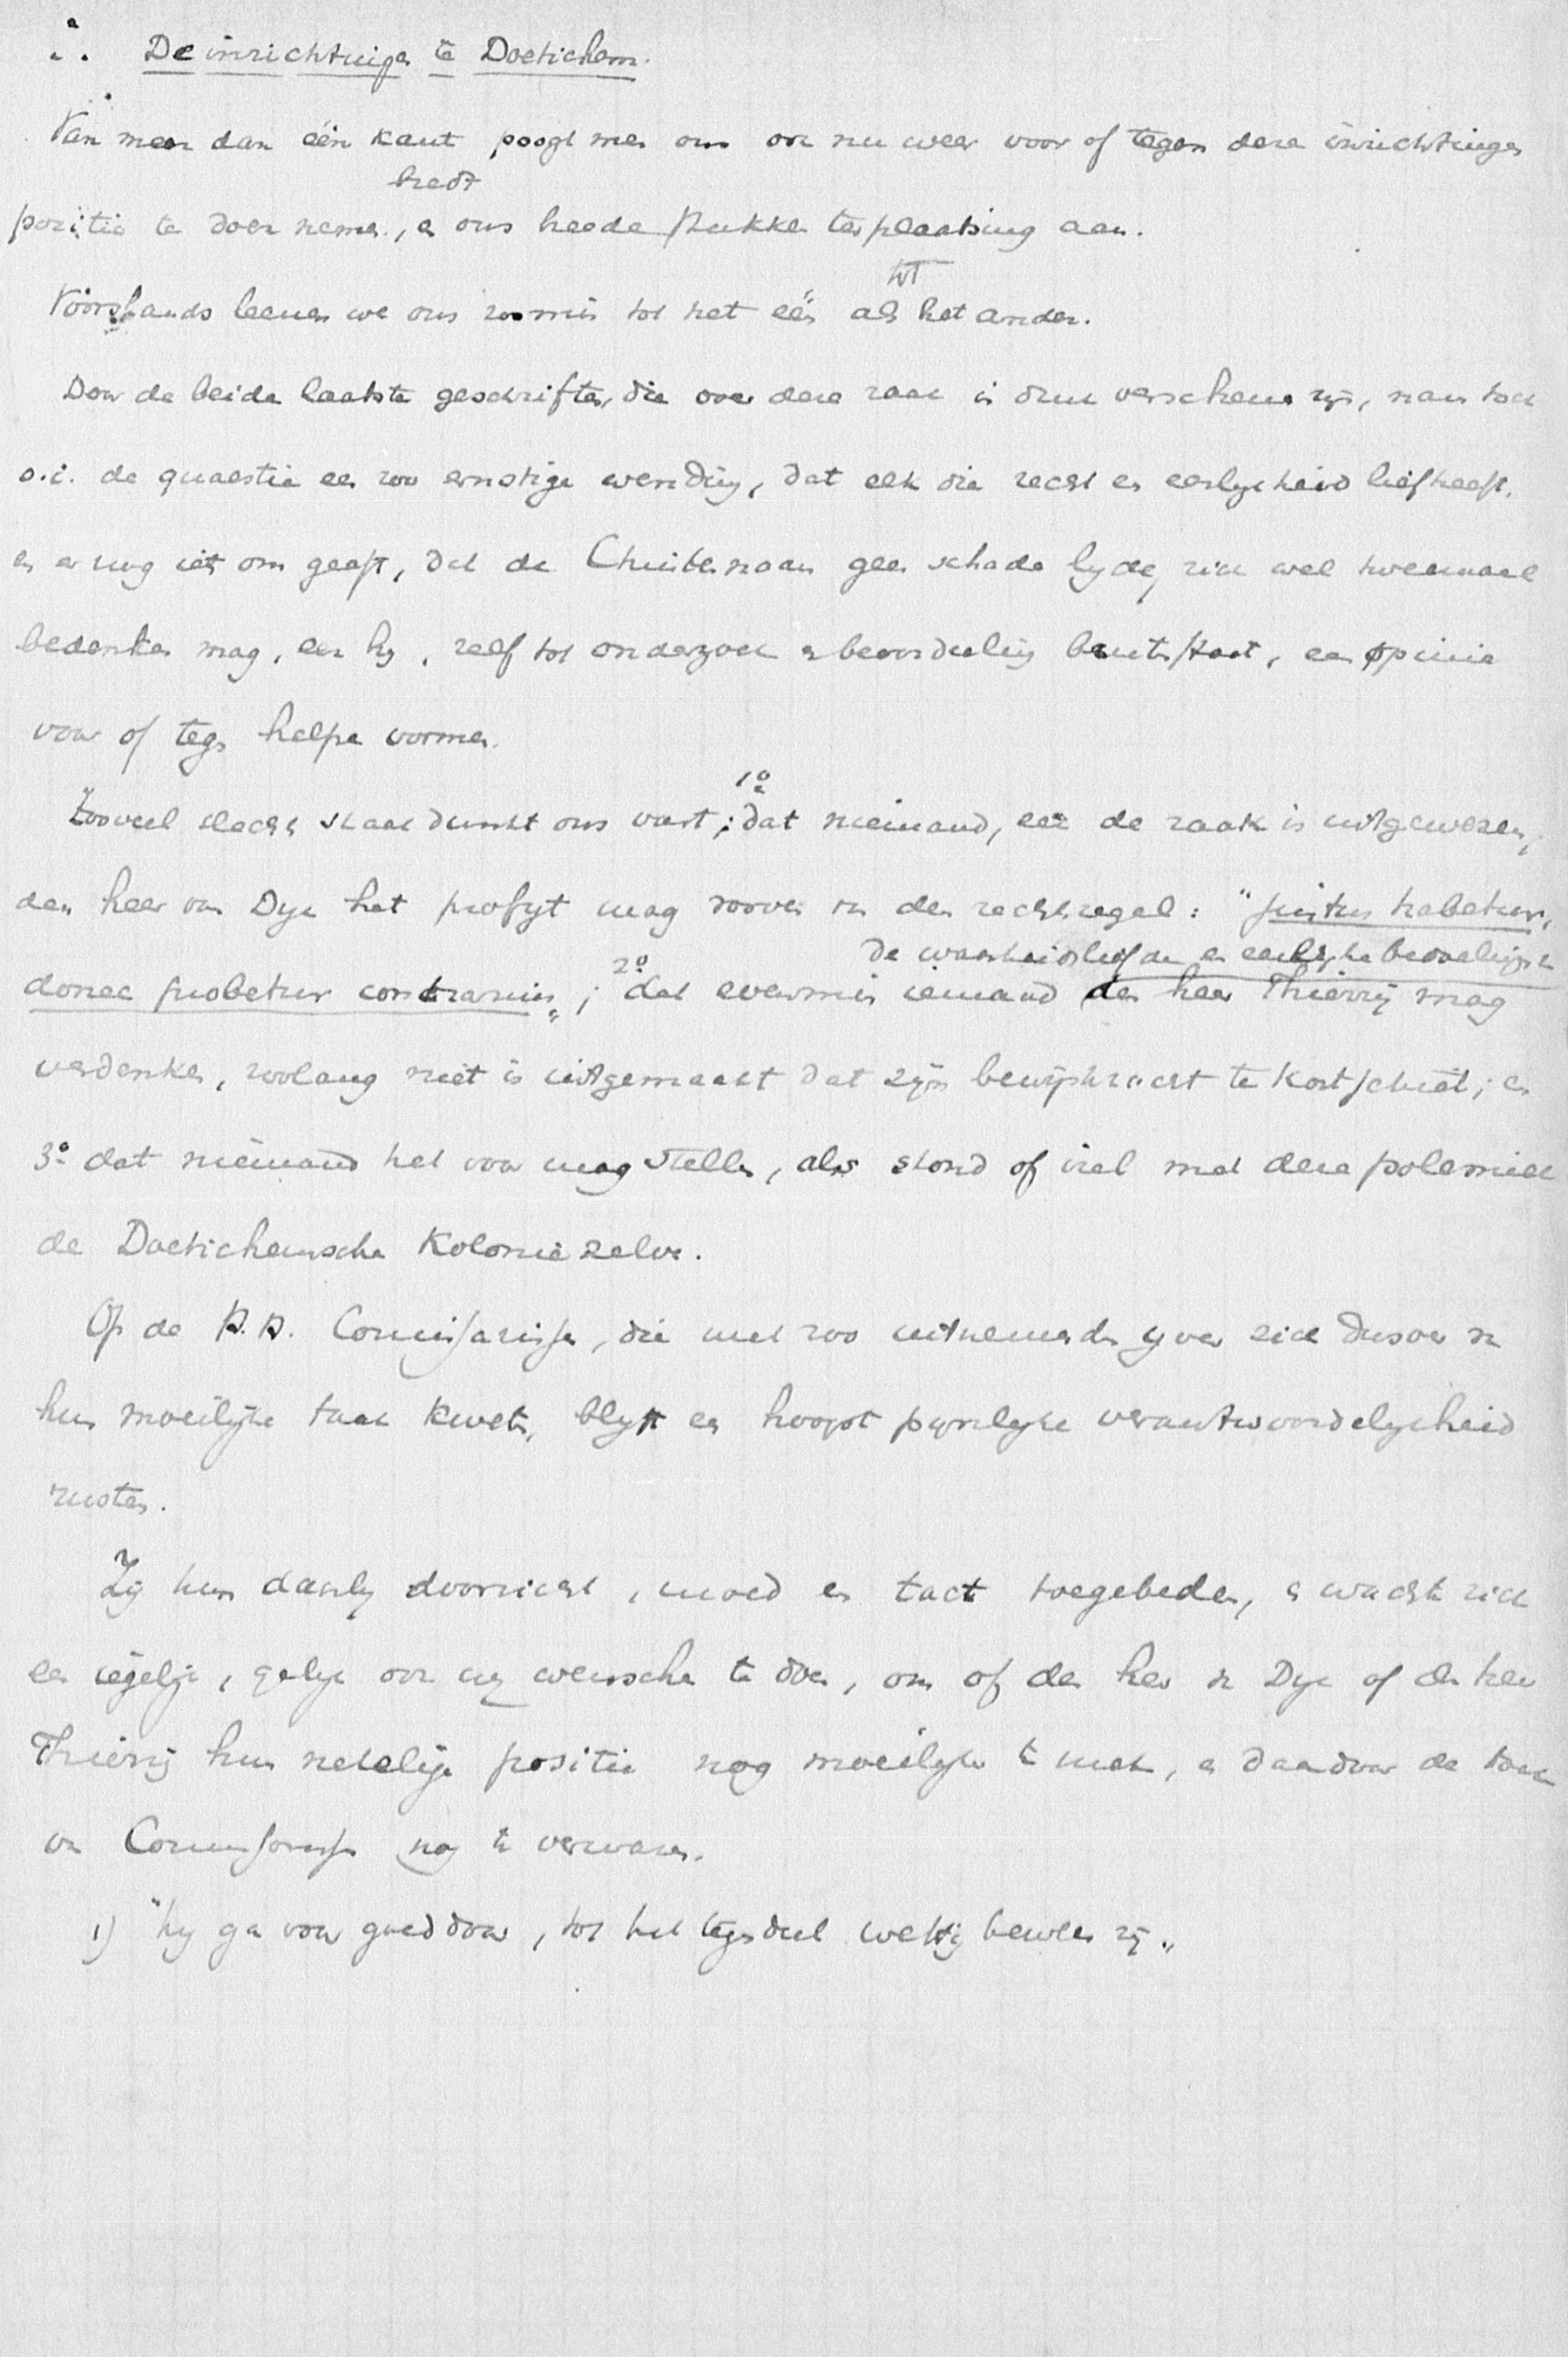 ∴ De inrichtingen te Doetichem.
Van meer dan één kant poogt men ons ook nu weer voor of tegen deze inrichtingen
biedt
positie te doen nemen, en ons heede stukken ter plaatsing aan.
tot
Voorshands leenen we ons zoomin tot het één als het ander.
Door de beide laatste geschriften, die over deze zaak in druk verschenen zijn, nam toch
o.i. de quaestie een zoo ernstige wending, dat elk die recht en eerlijkheid liefheeft,
en er nog iets om geeft, dat de Christennaam geen schade lijde, zich wel tweemaal
bedenken mag, eer hij, zelf tot onderzoek en beoordeeling buiten staat, een opinie
voor of tegen helpe vormen.
1o
Zooveel slechts staat dunkt ons vast; dat niemand, eer de zaak is uitgewezen,
den heer van Dijk het profijt mag rooven van den rechtsregel: "justus habetur,
de waarheidsliefde en eerlijke bedoelingen
donec probetur contrarium"; 2o dat evenmin iemand den heer Thierrij mag
verdenken, zoolang niet is uitgemaakt dat zijn bewijskracht te kort schiet; en
3o dat niemand het voor mag stellen, als stond of viel met deze polemiek
de Doetichemsche Kolonie zelve.
Op de H.H. Commissarissen, die met zoo uitnemenden ijver zich dusver van
hun moeilijke taak kweten, blijft een hoogst pijnlijke verantwoordelijkheid
rusten.
Zij hun daarbij doorzicht, moed en tact toegebeden, en wachte zich
een iegelijk, gelijk ook wij wenschen te doen, om of den heer v. Dijk of den heer
Thierrij hun netelige positie nog moeilijker te maken, en daardoor de taak
van Commissarissen nog te verzwaren.
1) "hij ga voor goed door, tot het tegendeel wettig bewezen zij."